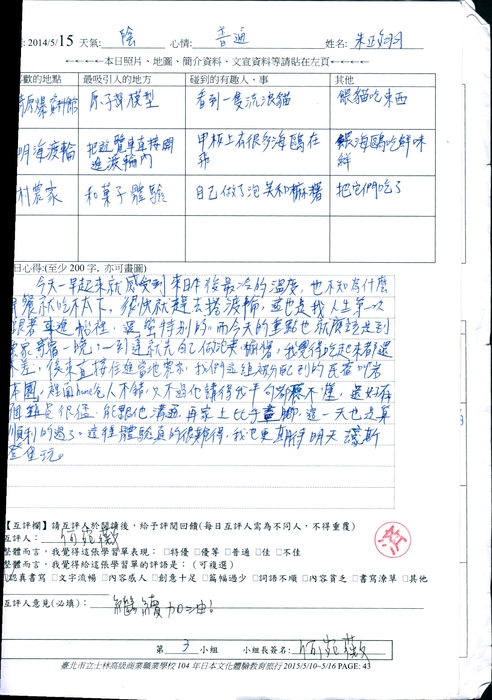 : 2014/5/15 天氣: 陰 心情: 普通 姓名:
←←←←本日照片、地圖、簡介資料、文宣資料等請貼在左頁←←←←
歡的地點 最吸引人的地方 碰到的有趣人、事 其他
原爆資料館 原子彈模型 看到一隻流浪貓 餵貓吃東西
明海渡輪 把遊覽車直接開進渡輪內 甲板上有很多海鷗在飛 餵海鷗吃鮮味鮮
村農家 和菓子體驗 自己做了泡芙和麻糬 把它們吃了
日心得:(至少 200 字, 亦可畫圖)
今天一早起來就感受到來日本後最冷的溫度,也不知為什麼
餐就吃不下,很快就趕去搭渡輪,這也是我人生第一次
跟著車進船裡,蠻特別的,而今天的重點也就應該是到
農家寄宿一晚,一到達就先自己做泡芙麻糬,我覺得吃起來都還
不差,後來直接住進當地農家,我們這組被分配到的民宿叫
人不錯,只不過他講得我半句都聽不懂,還好有
個 能跟他溝通再加上比手畫腳,這一天也算
順利的過了。這種體驗真的很難得,我也更期待明天豪斯
登堡玩。
【互評欄】請互評人於閱讀後,給予評閱回饋(每日互評人需為不同人,不得重覆)
互評人: 何宛薇
整體而言,我覺得這張學習單表現:□特優 □優等 □普通 □佳 □不佳
整體而言,我覺得給這張學習單的評語是:(可複選)
認真書寫 □文字流暢 □內容感人 □創意十足 □篇幅過少 □詞語不順 □內容貧乏 □書寫潦草 □其他
互評人意見(必填): 繼續加油!
第 3 小組 小組長簽名: 何宛薇
臺北市立士林高級商業職業學校 104 年日本文化體驗教育旅行 2015/5/10~5/16 PAGE: 43